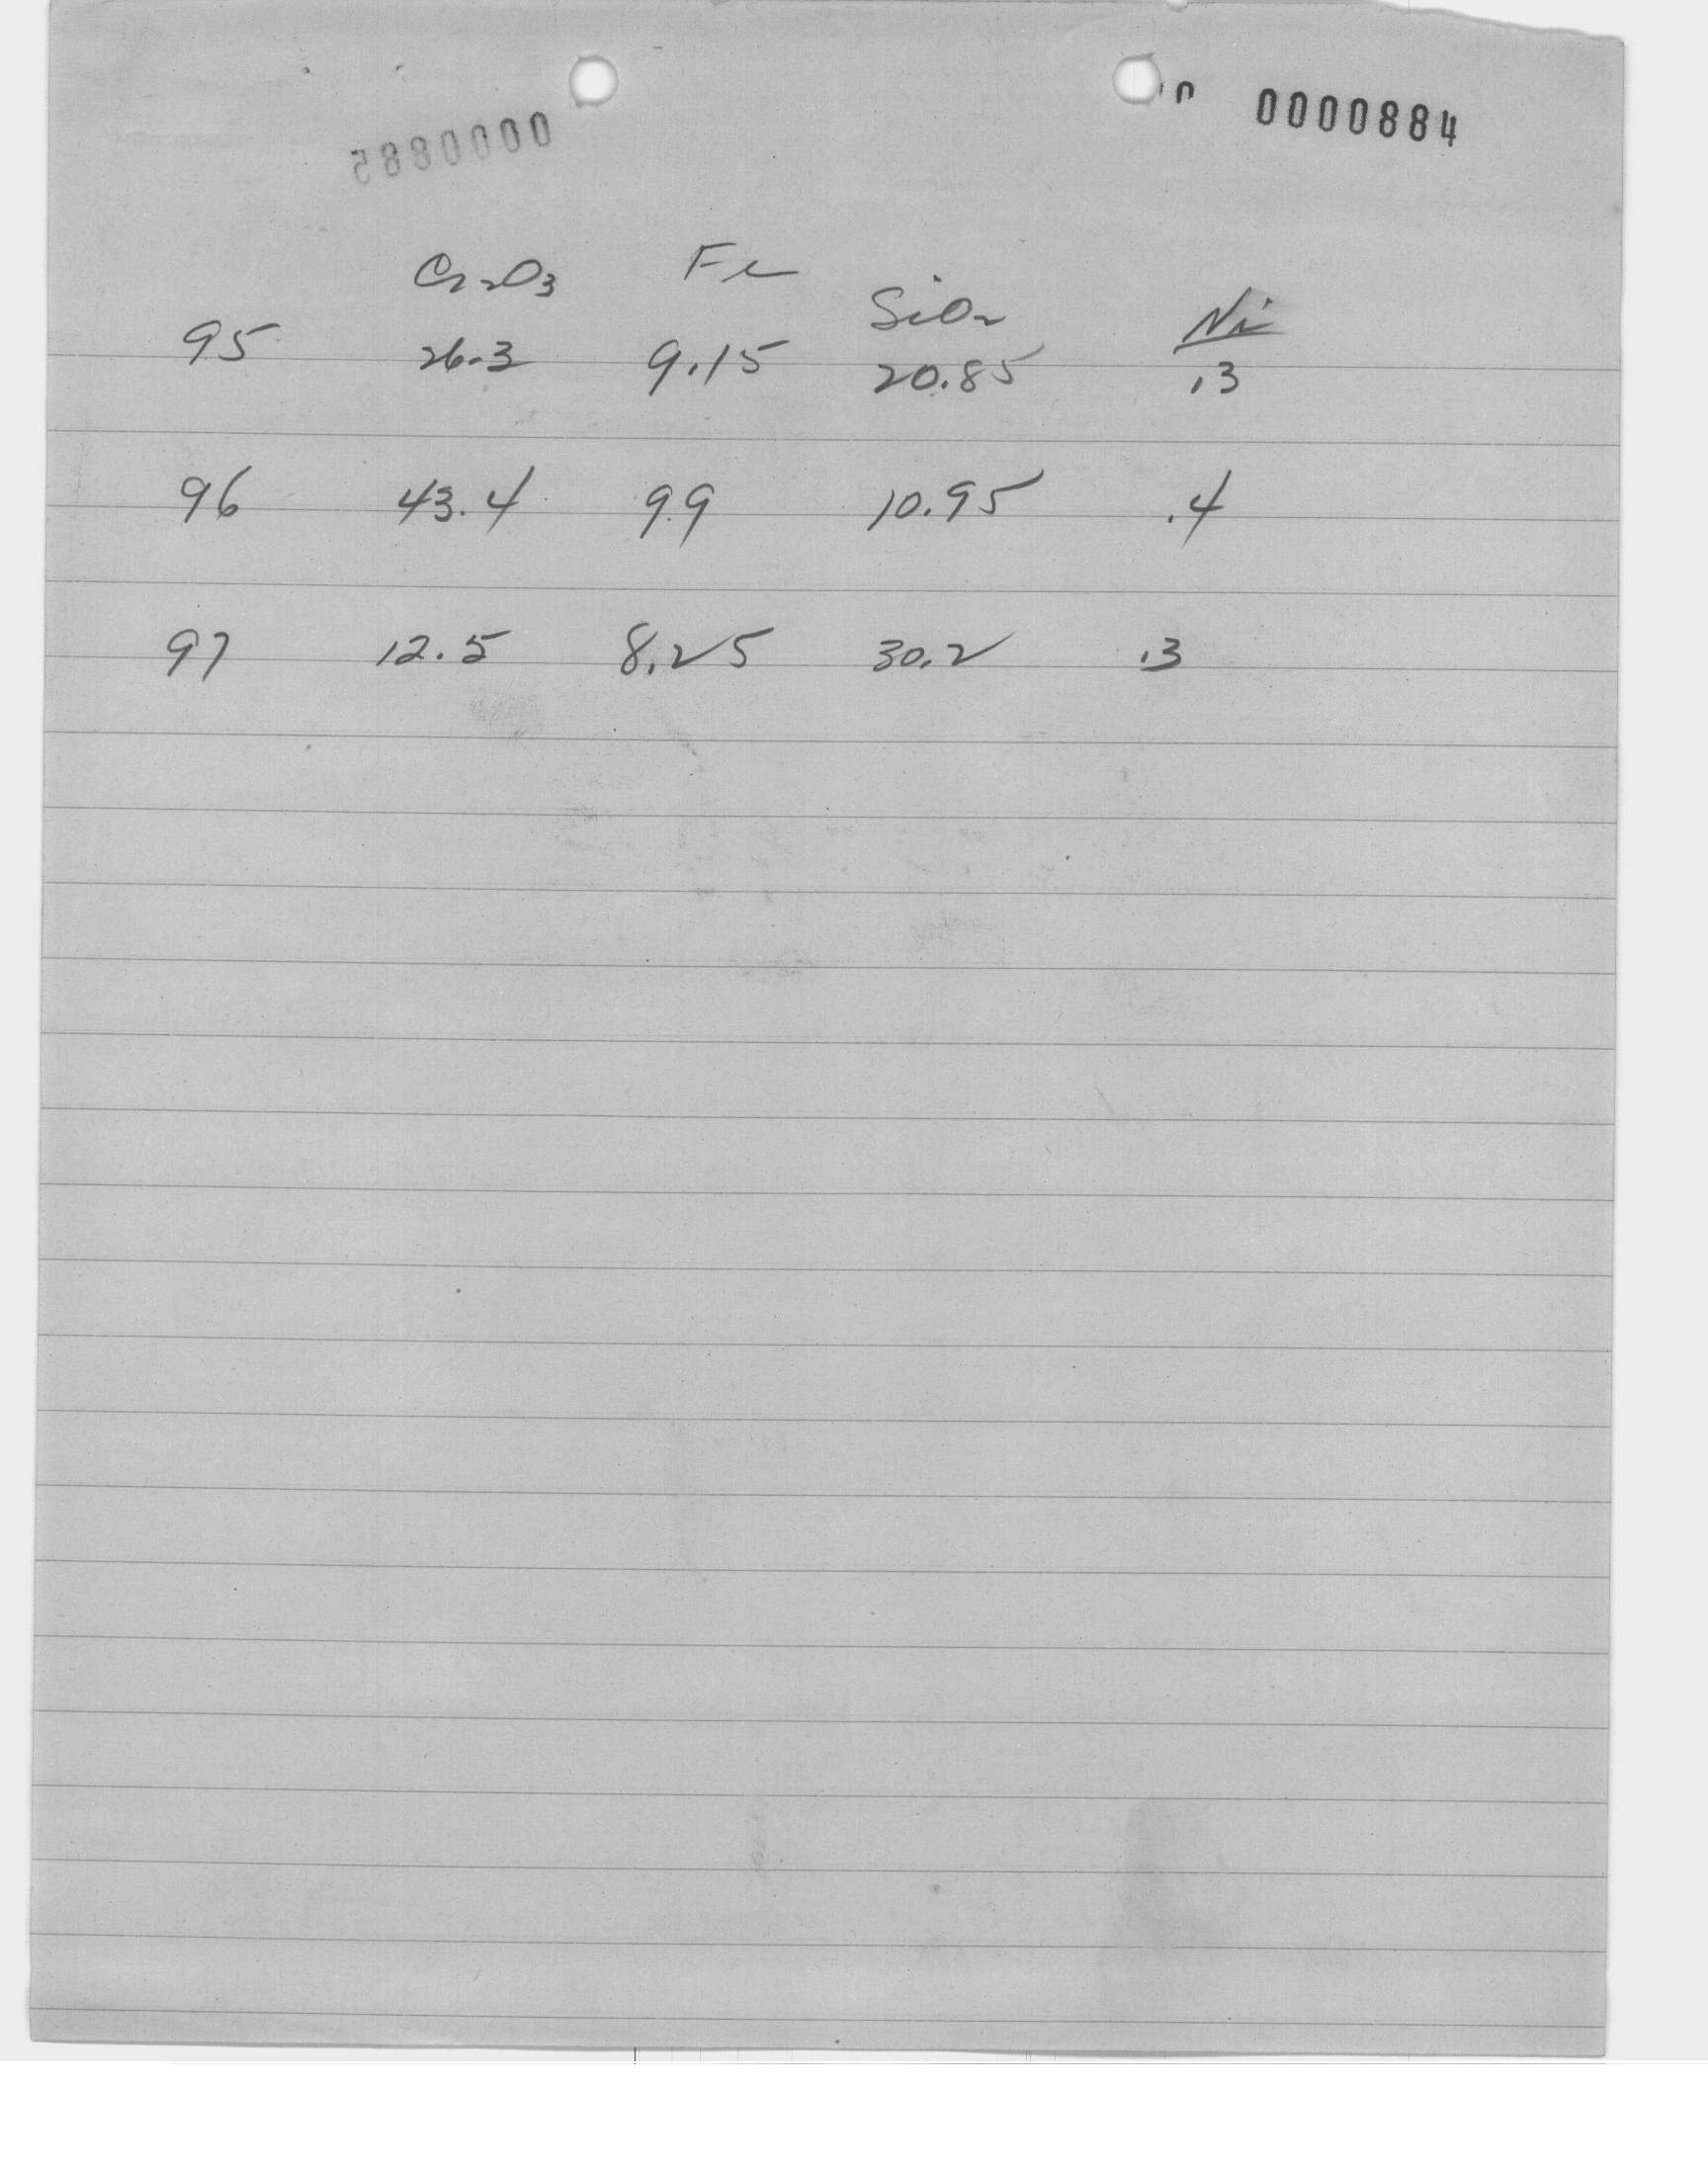 0000884
0000885
Cr2O3 Fe SiO2 Ni
95 26.3 9.15 20.85 .3
96 43.4 9.9 10.95 .4
97 12.5 8.25 30.2 .3